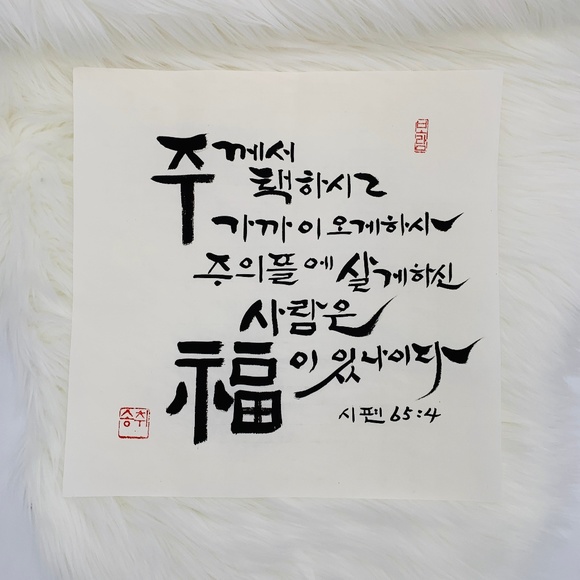 주께서
택하시고
가까이 오게하사
주의 뜰에 살게하신
사람은
福이 있나이다
시편 65:4
송취